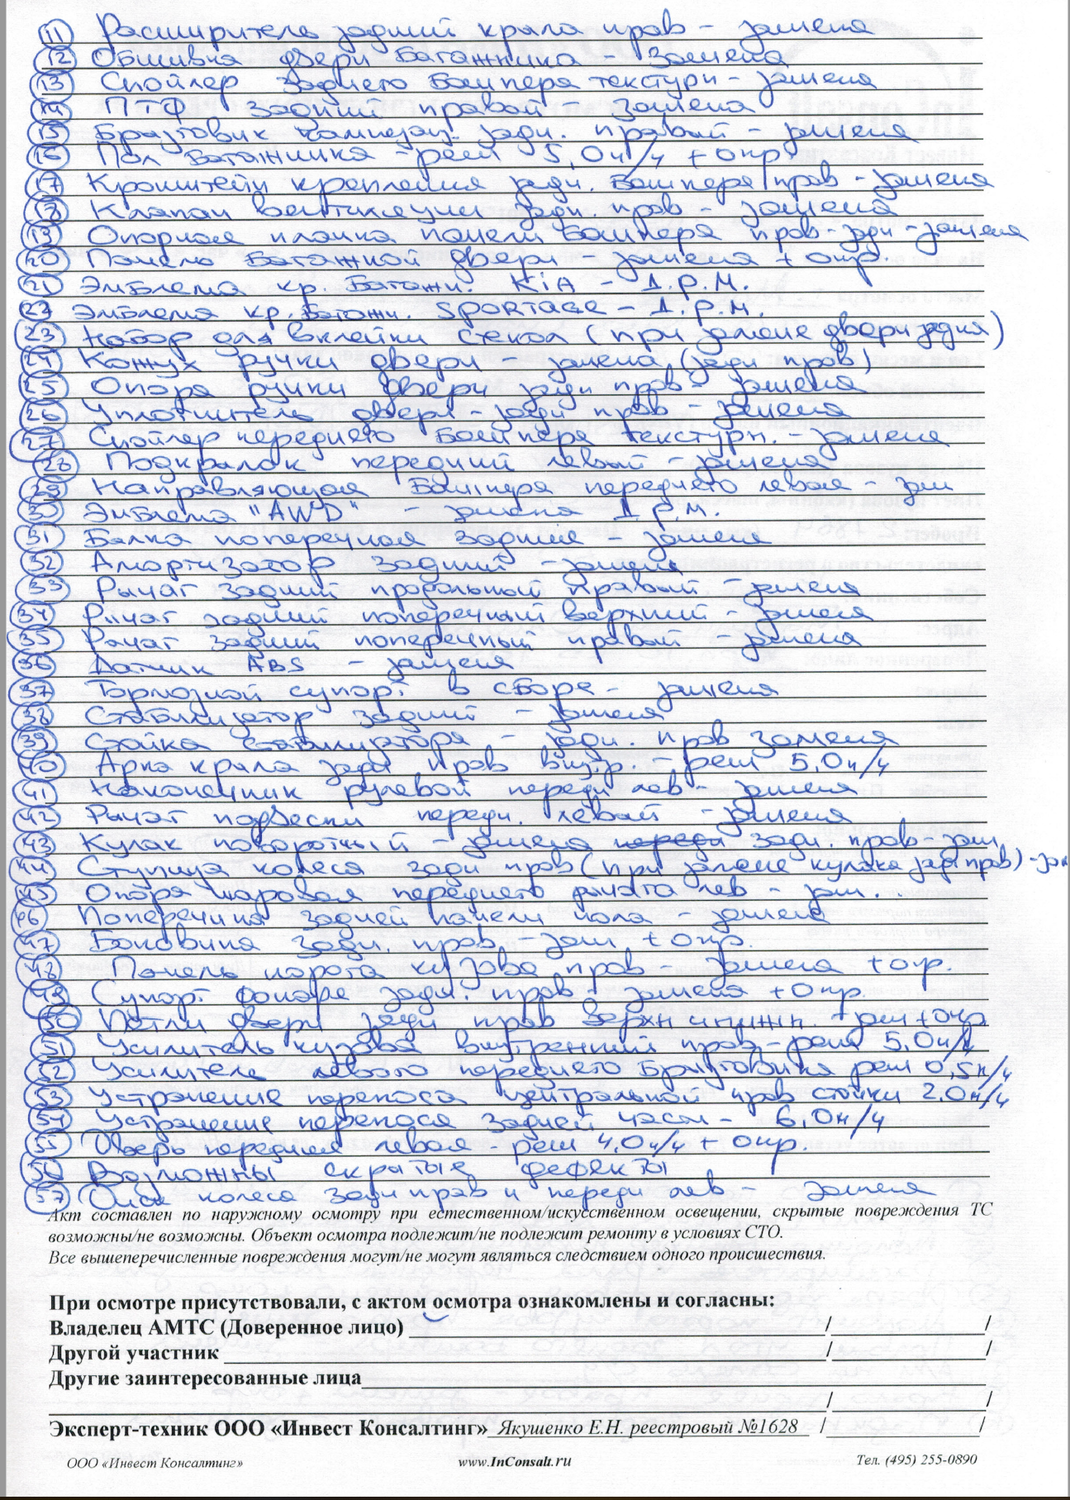 11 Расширитель задний крыла прав - замена
12 Обшивка двери багажника - замена
13 Спойлер заднего бампера текстурн - замена
14 ПТФ задний правый - замена
15 задн. правый - замена
16 Пол багажника - рем 5,0 н/ч + окр
17 Кронштейн крепления задн. бампера прав - замена
18 Клапан вентиляции задн. прав - замена
19 Опорная планка панели бампера прав-задн - замена
20 Панель багажной двери - замена + окр.
21 Эмблема кр. Багажн. KiA - Д.Р.М.
22 Эмблема кр. Багажн. SPORTAGE - Д.Р.М.
23 Набор для вклейки стекол (при замене двери задка)
24 Кожух ручки двери - замена (задн прав)
25 Опора ручки двери задн прав - замена
26 Уплотнитель двери - задн прав - замена
27 Спойлер переднего бампера текстурн. - замена
28 Подкрылок передний левый - замена
29 Направляющая бампера переднего левая - зам
30 Эмблема "AWD" - замена Д.Р.М.
31 Балка поперечная задняя - замена
32 Амортизатор задний - замена
33 Рычаг задний продольный правый - замена
34 Рычаг задний поперечный верхний - замена
35 Рычаг задний поперечный правый - замена
36 Датчик ABS - замена
37 Тормозной супорт в сборе - замена
38 Стабилизатор задний - замена
39 Стойка стабилизатора - задн. прав замена
40 Арка крыла задн прав внутр. - рем 5.0 н/ч
41 Наконечник рулевой передн лев - замена
42 Рычаг подвески передн. левый - замена
43 Кулак поворотный - замена задн. прав - зам
44 Ступица колеса задн прав (при замене кулака задн прав) - зам
45 Опора шаровая переднего рычага лев - зам...
46 Поперечина задней панели пола - замена
47 Боковина задн. прав - зам + окр.
48 Панель порога кузова прав - замена + окр.
49 Супорт фонаря задн. прав - замена + окр.
50 Петли двери задн прав верхн и нижн. - рем + окр
51 Усилитель кузова внутренний прав - рем 5.0 н/ч
52 Усилитель левого переднего рем 0,5 н/ч
53 Устранение перекоса центральной прав стойки 2.0 н/ч
54 Устранение перекоса задней части - 6,0 н/ч
55 Дверь передняя левая - рем 4.0 н/ч + окр.
56 Возможны скрытые дефекты
57 Диск колеса задн прав и передн лев - замена
Акт составлен по наружному осмотру при естественном/искусственном освещении, скрытые повреждения ТС
возможны/не возможны. Объект осмотра подлежит/не подлежит ремонту в условиях СТО.
Все вышеперечисленные повреждения могут/не могут являться следствием одного происшествия.
При осмотре присутствовали, с актом осмотра ознакомлены и согласны:
Владелец АМТС (Доверенное лицо) ____/____/
Другой участник ____/____/
Другие заинтересованные лица____
____/____/
Эксперт-техник ООО «Инвест Консалтинг» Якушенко Е.Н. реестровый №1628 /____/
ООО «Инвест Консалтинг» www.InConsalt.ru Тел. (495) 255-0890